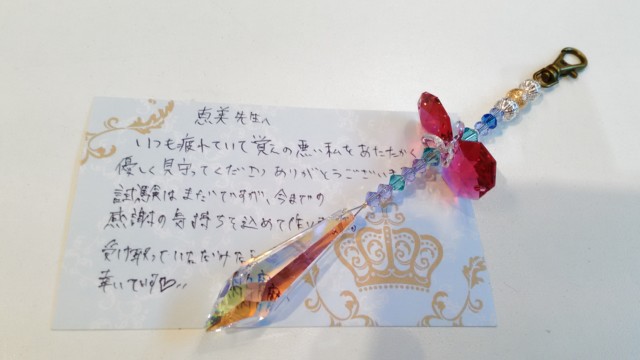 恵美先生へ
いつも疲れていて覚えの悪い私をあたたかく
優しく見守ってくださり ありがとうございま
試験はまだですが、今までの
感謝の気持ちを込めて作り
受け取っていただけたら
幸いです♡